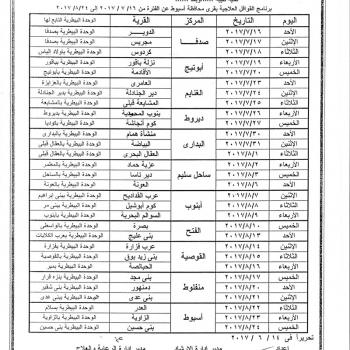 برنامج القوافل العلاجية بقرى محافظة أسيوط عن الفترة من ٢٠١٧/٧/١٦ الى ٢٠١٧/٨/٢٤
اليوم التاريخ المركز القرية الوحدة البيطرية التابع لها
الأحد ٢٠١٧/٧/١٦ صدفا الدوير الوحدة البيطرية بصدفا
الإثنين ٢٠١٧/٧/١٧ مجريس الوحدة البيطرية بصدفا
الثلاثاء ٢٠١٧/٧/١٨ كردوس الوحدة البيطرية بأولاد الياس
الأربعاء ٢٠١٧/٧/١٩ أبوتيج نزلة باقور الوحدة البيطرية بباقور
الخميس ٢٠١٧/٧/٢٠ الأقادمة الوحدة البيطرية بأبوتيج
الأحد الغنايم العامرى الوحدة البيطرية بالعزايزة
الإثنين ٢٠١٧/٧/٢٤ دير الجنادلة الوحدة البيطرية بدير الجنادلة
الثلاثاء ٢٠١٧/٧/٢٥ المشايعة قبلى الوحدة البيطرية بالمشايعة
الأربعاء ٢٠١٧/٧/٢٦ ديروط الوحدة البيطرية بديروط
الخميس ٢٠١٧/٧/٢٧ كوم أنجاشة الوحدة البيطرية
الأحد ٢٠١٧/٧/٣٠ البدارى منشأة همام الوحدة البيطرية بالبدارى
الإثنين ٢٠١٧/٧/٣١ البياضة الوحدة البيطرية بالعقال قبلى
الثلاثاء ٢٠١٧/٨/١ العقال البحرى الوحدة البيطرية بالعقال البحرى
الأربعاء ٢٠١٧/٨/٢ ساحل سليم عزبة حماد الوحدة البيطرية
الخميس ٢٠١٧/٨/٣ دير تاسا الوحدة البيطرية
الأحد ٢٠١٧/٨/٦ العونة الوحدة البيطرية بالعونة
الإثنين أبنوب عرب القداديح الوحدة البيطرية ببنى ابراهيم
الثلاثاء ٢٠١٧/٨/٨ كوم أبوشيل الوحدة البيطرية
الأربعاء ٢٠١٧/٨/٩ السوالم البحرية الوحدة البيطرية بأبنوب
الخميس ٢٠١٧/٨/١٠ الفتح بصرة الوحدة البيطرية بالواسطى
الأحد ٢٠١٧/٨/١٣ بنى عليج الوحدة البيطرية بعرب الكلابات
الإثنين ٢٠١٧/٨/١٤ القوصية عرب فزارة الوحدة البيطرية بفزارة
الثلاثاء ٢٠١٧/٨/١٥ بنى زيد بوق الوحدة البيطرية بالقوصية
الأربعاء ٢٠١٧/٨/١٦ الحبالصة الوحدة البيطرية بمير
الخميس ٢٠١٧/٨/١٧ منفلوط بنى مجد الوحدة البيطرية بنزة قرار
الأحد ٢٠١٧/٨/٢٠ دمنهور الوحدة البيطرية ببنى شقير
الإثنين ٢٠١٧/٨/٢١ بنى عدى الوحدة البيطرية ببنى عدى
الثلاثاء ٢٠١٧/٨/٢٢ أسيوط العدر الوحدة البيطرية
الأربعاء ٢٠١٧/٨/٢٣ الزاوية الوحدة البيطرية بالزاوية
الخميس ٢٠١٧/٨/٢٤ بنى حسين الوحدة البيطرية ببنى حسين
تحريرا فى ٢٠١٧/٦/١٤